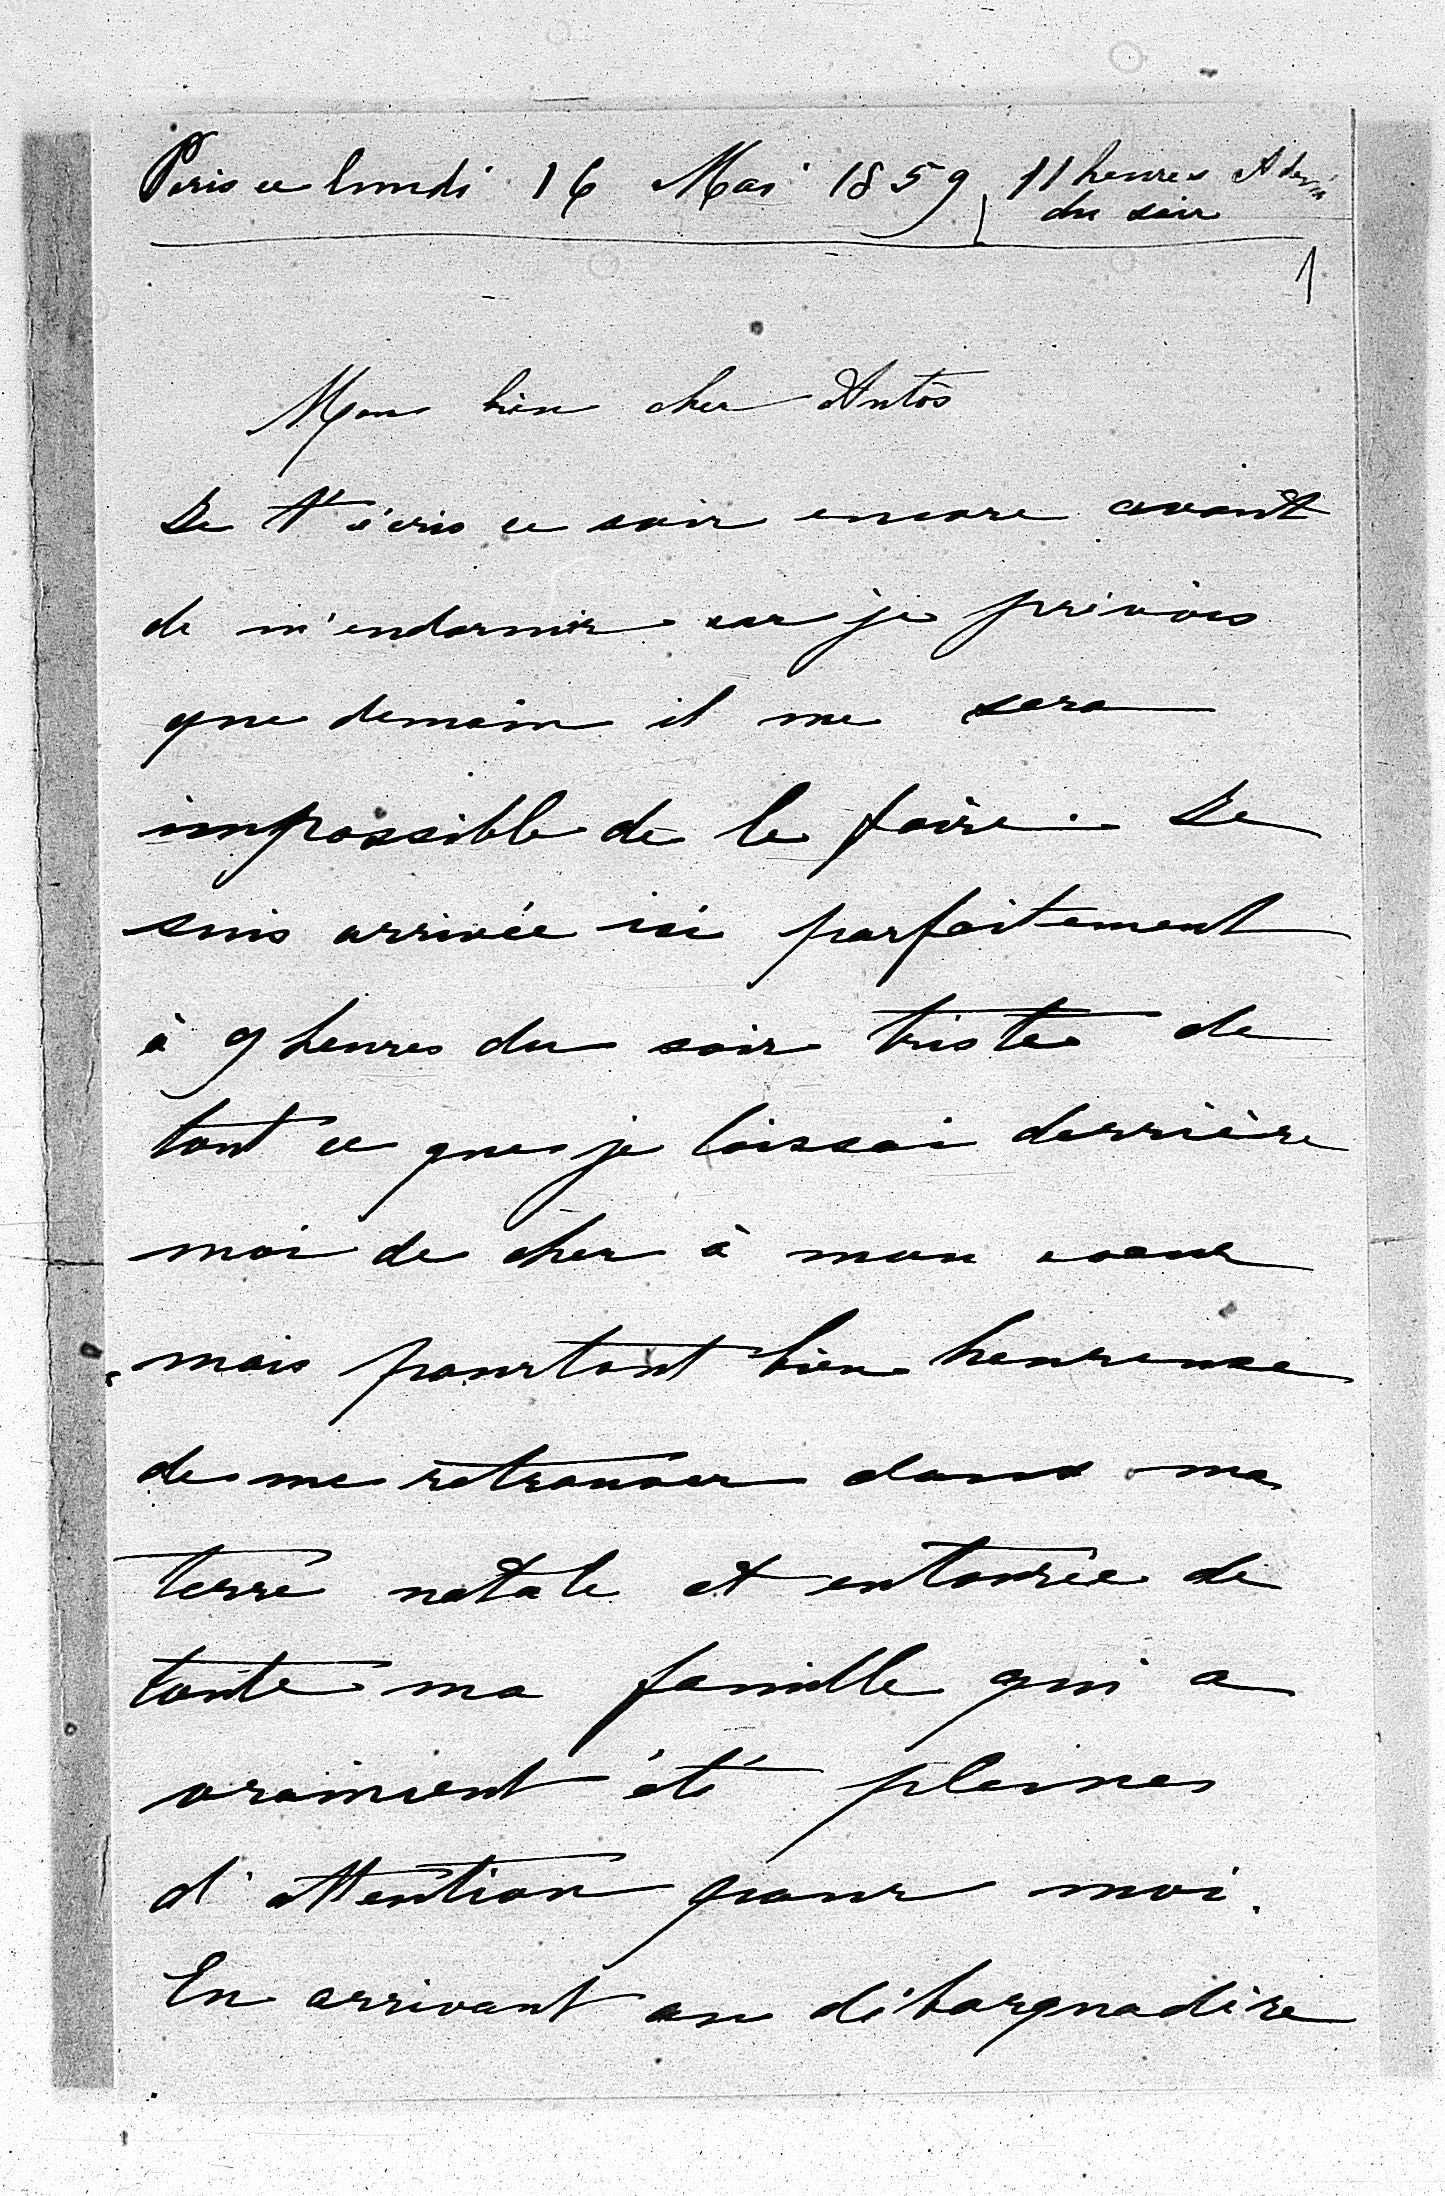 Paris ce lundi 16 Mai 1859 11 heures et demi
du soir
1
Mon bien cher Antos
Je t'écris ce soir encore avant
de m'endormir car je prévois
que demain il me sera
impossible de le faire. Je
suis arrivée ici parfaitement
à 9 heures du soir triste de
tout ce que je laissai derrière
moi de cher à mon coeur
mais pourtant bien heureuse
de me retrouver dans ma
terre natale et entourée de
toute ma famille qui a
vraiment été pleines
d'attention pour moi.
En arrivant au débarquadère